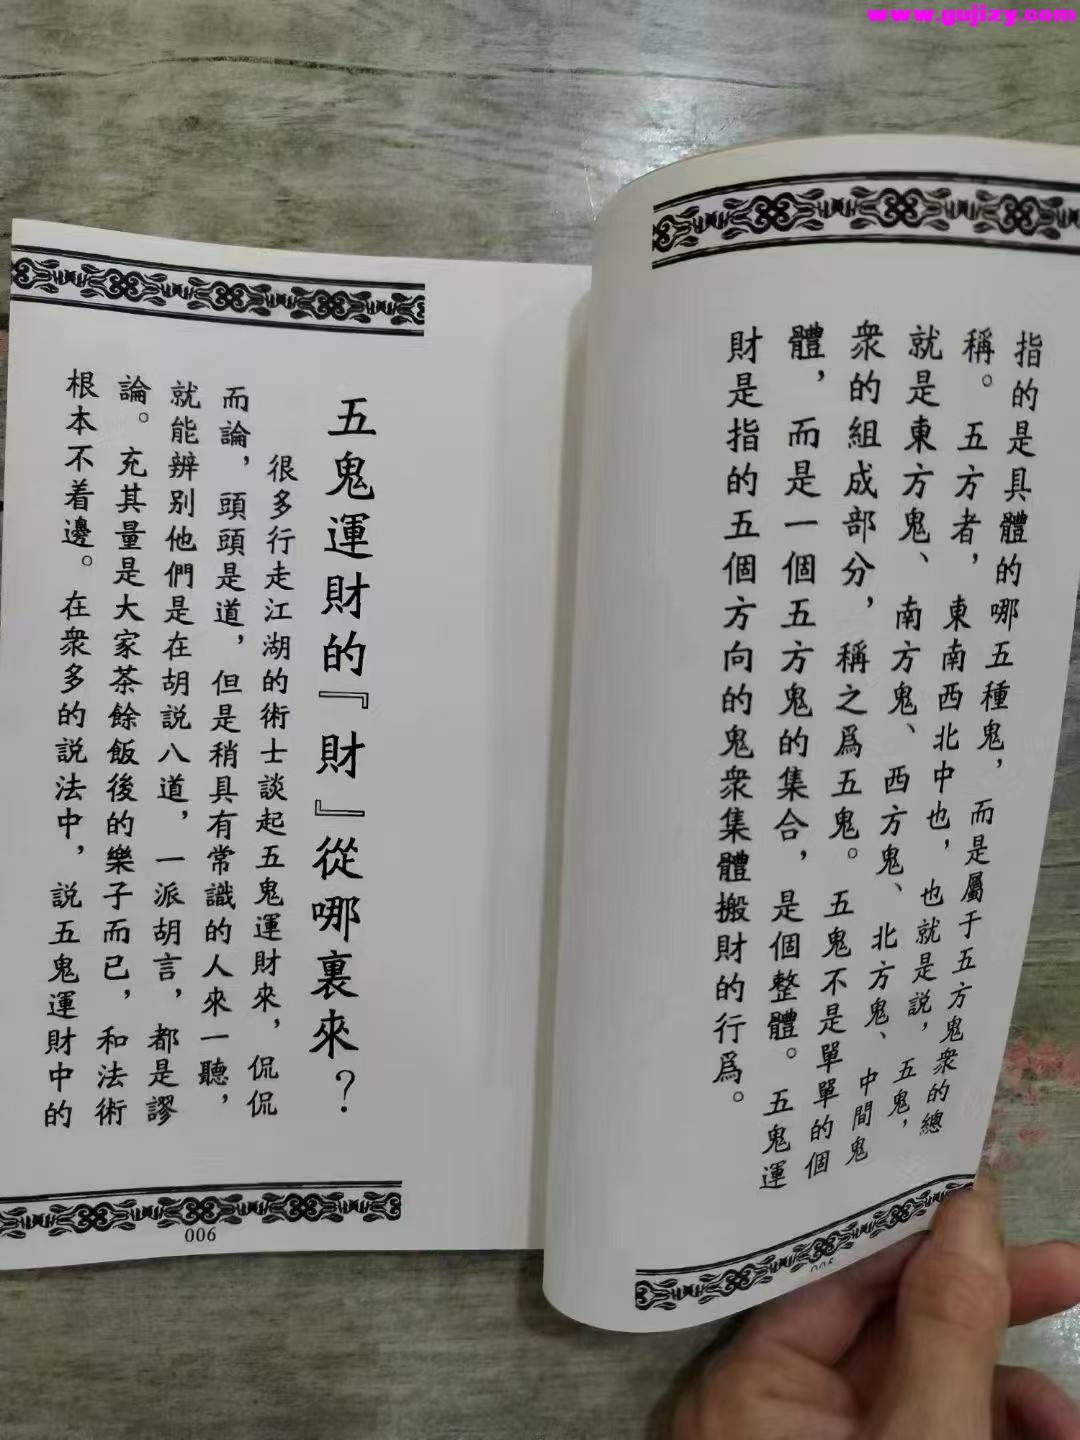 www.gujizy.com
指的是具體的哪五種鬼，而是屬于五方鬼衆的總
稱。五方者，東南西北中也，也就是説，五鬼，
就是東方鬼、南方鬼、西方鬼、北方鬼、中間鬼
衆的組成部分，稱之爲五鬼。五鬼不是單單的個
體，而是一個五方鬼的集合，是個整體。五鬼運
財是指的五個方向的鬼衆集體搬財的行爲。
五鬼運財的『財』從哪裏來？
很多行走江湖的術士談起五鬼運財來，侃侃
而論，頭頭是道，但是稍具有常識的人來一聽，
就能辨别他們是在胡説八道，一派胡言，都是謬
論。充其量是大家茶餘飯後的樂子而已，和法術
根本不着邊。在衆多的説法中，説五鬼運財中的
006